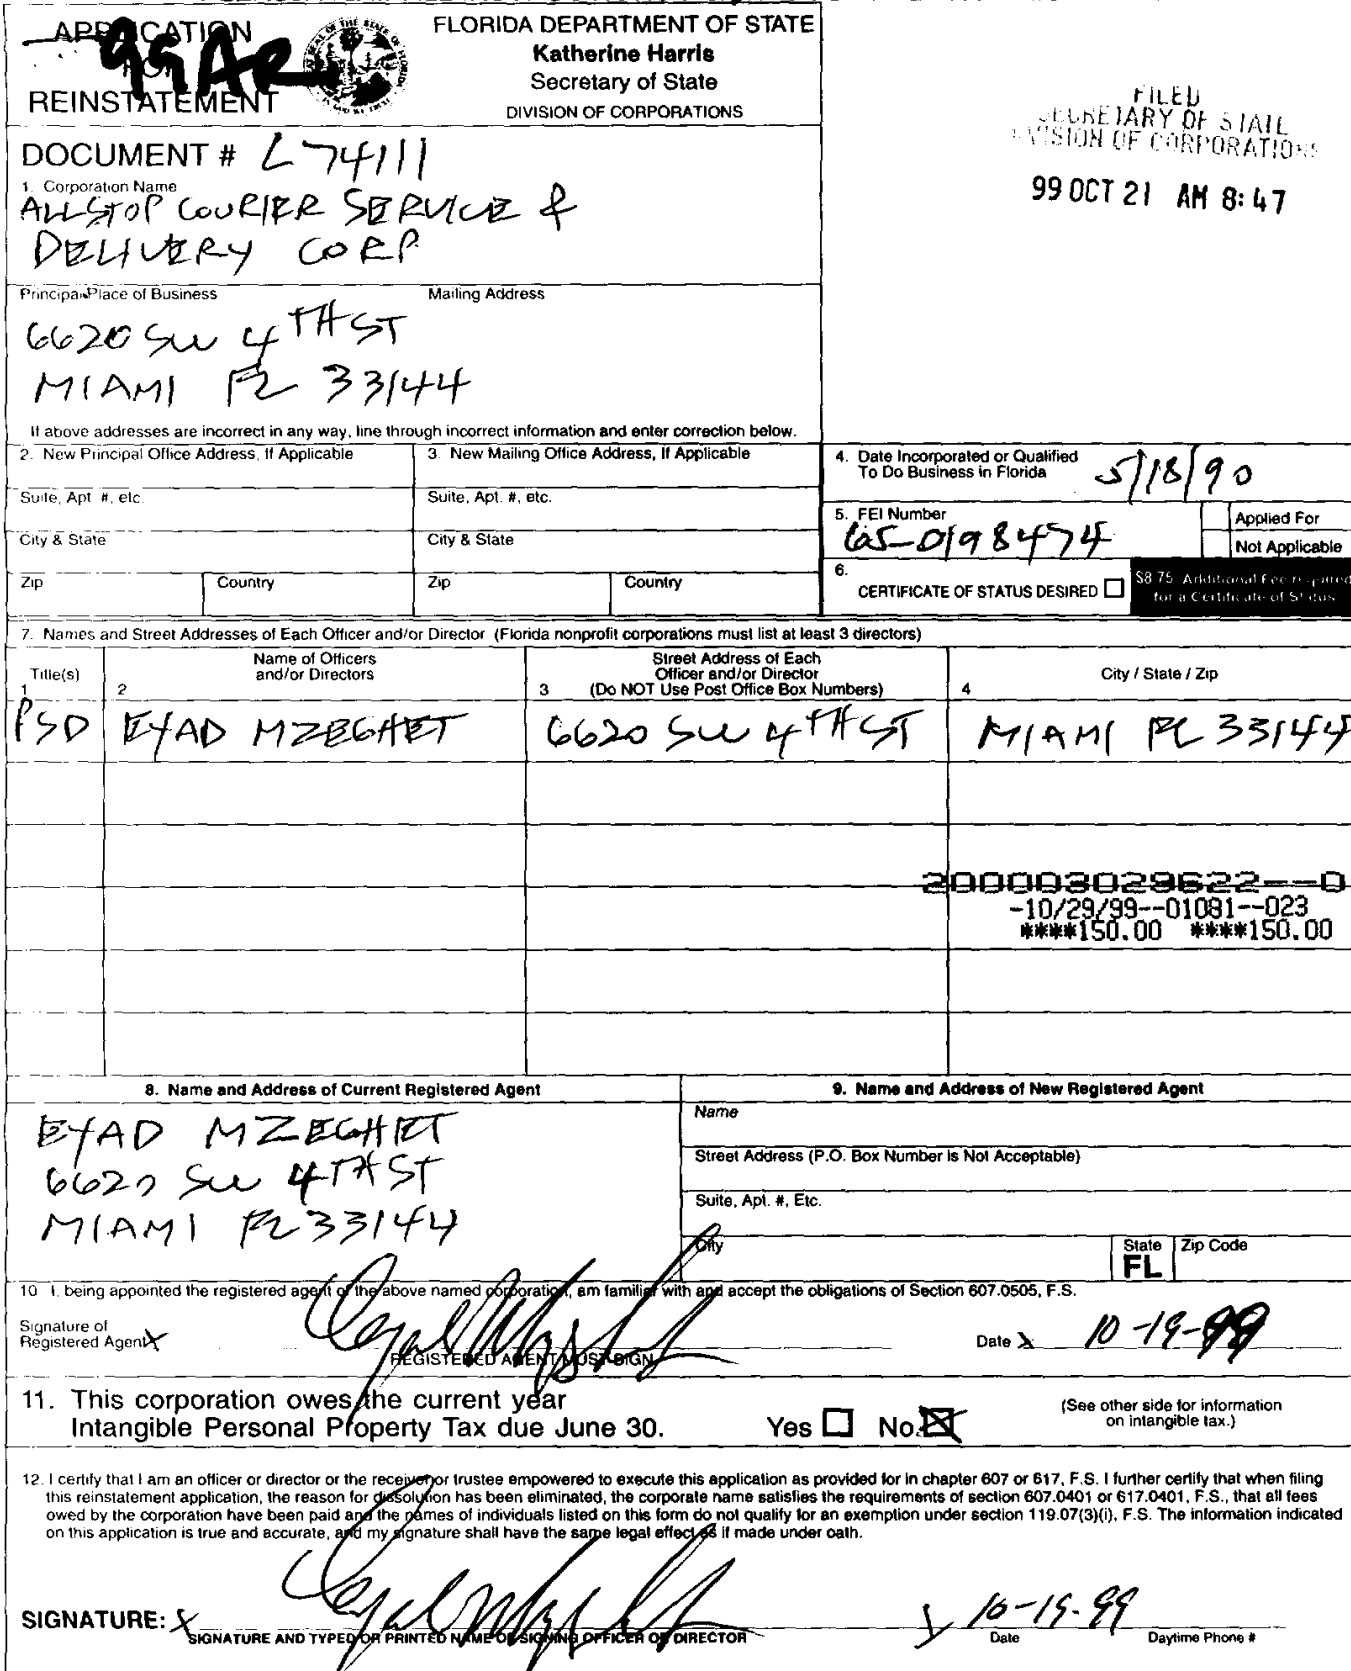 APPLICATION
99AR
FOR
REINSTATEMENT
FLORIDA DEPARTMENT OF STATE
Katherine Harris
Secretary of State
DIVISION OF CORPORATIONS
FILED
SECRETARY OF STATE
DIVISION OF CORPORATIONS
99 OCT 21 AM 8:47
DOCUMENT # L74111
1. Corporation Name
ALLSTOP COURIER SERVICE &
DELIVERY CORP
Principal Place of Business Mailing Address
6620 SW 4TH ST
MIAMI FL 33144
If above addresses are incorrect in any way, line through incorrect information and enter correction below.
2. New Principal Office Address, If Applicable 3. New Mailing Office Address, If Applicable
Suite, Apt #, etc. Suite, Apt. #, etc.
City & State City & State
Zip Country Zip Country
4. Date Incorporated or Qualified
To Do Business in Florida 5/18/90
5. FEI Number Applied For
65-0198474 Not Applicable
6.
CERTIFICATE OF STATUS DESIRED $8.75 Additional Fee required
for a Certificate of Status
7. Names and Street Addresses of Each Officer and/or Director (Florida nonprofit corporations must list at least 3 directors)
Title(s) Name of Officers Street Address of Each City / State / Zip
and/or Directors Officer and/or Director
1 2 3 (Do NOT Use Post Office Box Numbers) 4
PSD EYAD MZEGHET 6620 SW 4TH ST MIAMI FL 33144
200003029622--0
-10/29/99--01081--023
****150.00 ****150.00
8. Name and Address of Current Registered Agent
EYAD MZEGHET
6620 SW 4TH ST
MIAMI FL 33144
9. Name and Address of New Registered Agent
Name
Street Address (P.O. Box Number is Not Acceptable)
Suite, Apt. #, Etc.
City State Zip Code
FL
10 I, being appointed the registered agent of the above named corporation, am familiar with and accept the obligations of Section 607.0505, F.S.
Signature of
Registered Agent X Date X 10-19-99
REGISTERED AGENT MUST SIGN
11. This corporation owes the current year
Intangible Personal Property Tax due June 30. Yes No X
(See other side for information
on intangible tax.)
12. I certify that I am an officer or director or the receiver or trustee empowered to execute this application as provided for in chapter 607 or 617, F.S. I further certify that when filing
this reinstatement application, the reason for dissolution has been eliminated, the corporate name satisfies the requirements of section 607.0401 or 617.0401, F.S., that all fees
owed by the corporation have been paid and the names of individuals listed on this form do not qualify for an exemption under section 119.07(3)(i), F.S. The information indicated
on this application is true and accurate, and my signature shall have the same legal effect as if made under oath.
SIGNATURE: X 10-19-99
SIGNATURE AND TYPED OR PRINTED NAME OF SIGNING OFFICER OR DIRECTOR Date Daytime Phone #